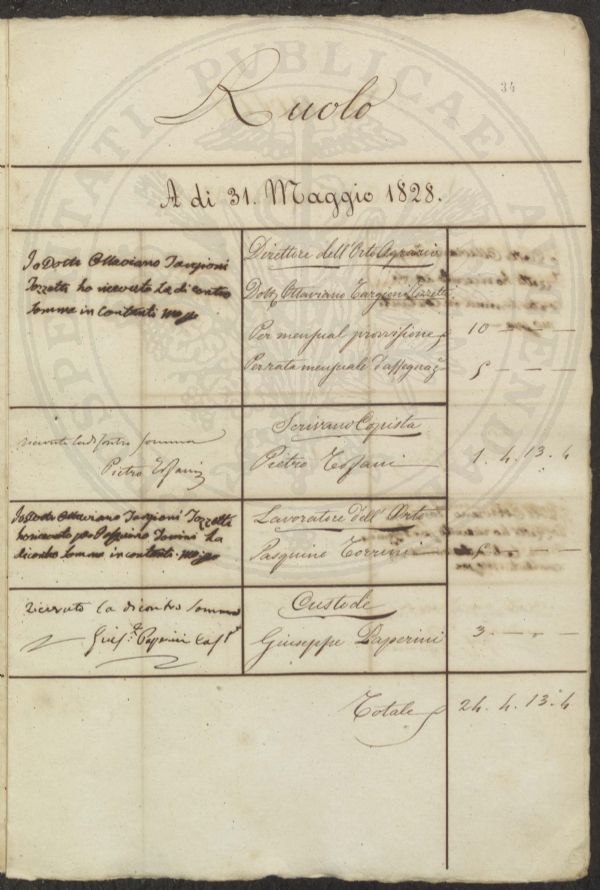 34
Ruolo
A di 31. Maggio 1828.
Io Dottr Ottaviano Targioni
Tozzetti ho ricevuto la di contro
somma in contanti
Direttore dell'Orto Agrario
Dottr Ottaviano Targioni Tozzetti
Per mensual provvisione 10 — — —
Per rata mensuale d'assegnaz 5 — — —
ricevuto la di contro somma
Pietro Tofani
Scrivano Copista
Pietro Tofani 1. 4. 13. 4
Io Dottr Ottaviano Targioni Tozzetti
ho ricevuto per Pasquino Torrini la
di contro somma in contanti
Lavoratore dell'Orto
Pasquino Torrini 5 — — —
ricevuto la di contro somma
Gius.e Paperini
Custode
Giuseppe Paperini 3 — — —
Totale 24. 4. 13. 4
SPERITATI PUBLICAE